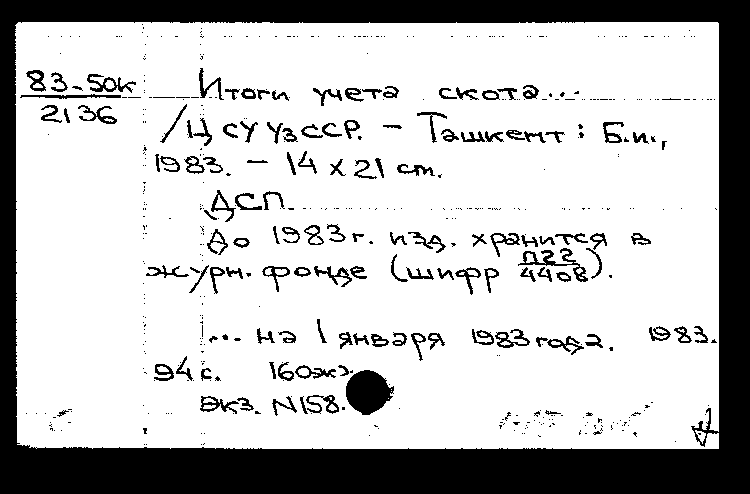 83-50к
2136
Итоги учета скота...
/ЦСУ УзССР. - Ташкент: Б.и.,
1983. - 14 x 21 cm.
ДСП.
До 1983г. изд. хранится в
журн. фонде (шифр П22/4408).
... на 1 января 1983 года. 1983.
94 с. 160экз.
Экз. N158.